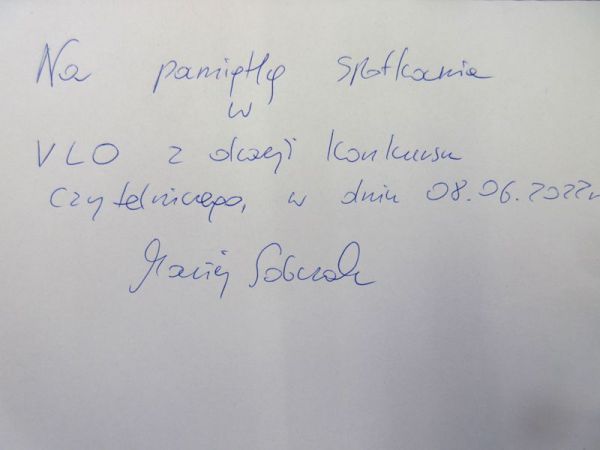 Na pamiątkę spotkania
w
VLO z okazji konkursu
czytelniczego, w dniu 08.06.2022r
Maciej Sobczak